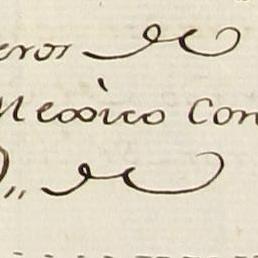 eros de
Mexico Con
de